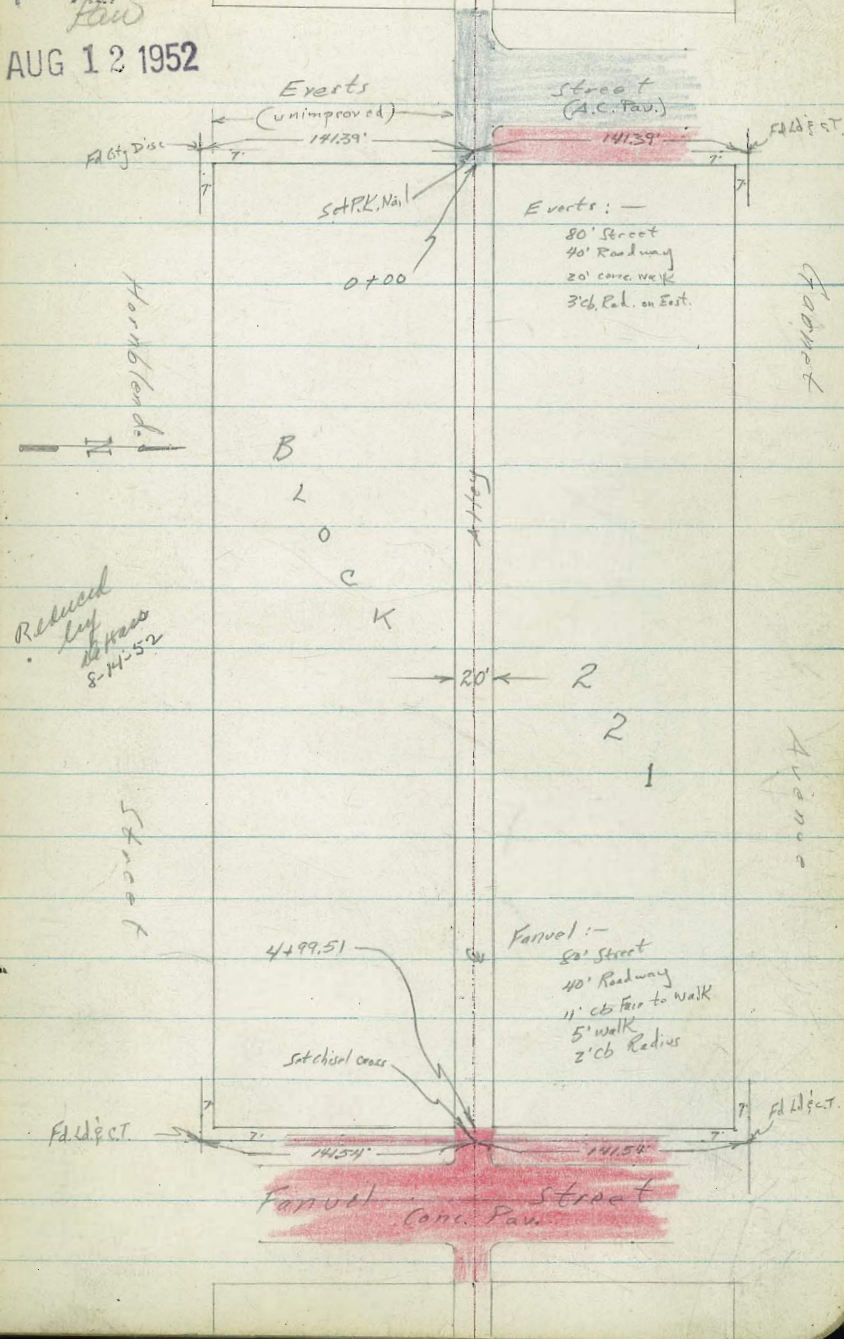 Law
AUG 12 1952
Everts Street
(unimproved) (A.C. Pav.)
141.39' 141.39'
Fd Cty Disc
Fd Ld & C.T.
7' 7'
7' 7'
Set P.K. Nail
0+00
Everts: —
80' Street
40' Roadway
20' conc. walk
3' cb. Rad. on East.
Hornblend
Garnet
N
B
L
O
C
K
Alley
Reduced
by
8-14-52
20'
2
2
1
Street
Avenue
4+99.51
Fanuel :-
80' Street
40' Roadway
11' cb Face to Walk
5' walk
2' cb Radius
Set chisel cross
7' 7'
Fd. Ld & C.T.
Fd Ld & C.T.
7' 7'
141.54' 141.54'
Fanuel Street
Conc. Pav.